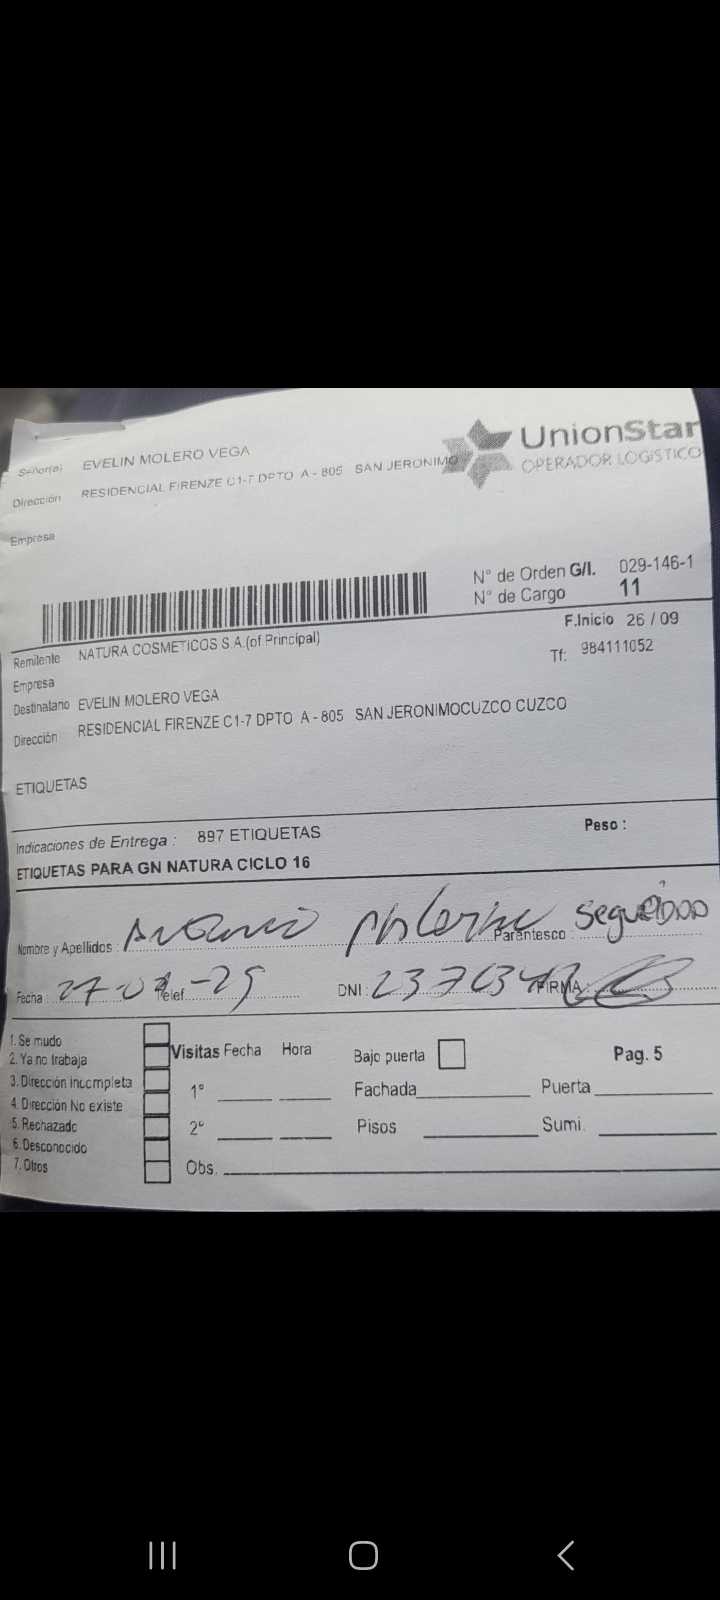 Señor(a) EVELIN MOLERO VEGA
Dirección RESIDENCIAL FIRENZE C1-7 DPTO A - 805 SAN JERONIMO
UnionStar
OPERADOR LOGÍSTICO
Empresa
N° de Orden G/I. 029-146-1
N° de Cargo 11
F.Inicio 26 / 09
Remitente NATURA COSMETICOS S.A.(of.Principal)
Tf: 984111052
Empresa
Destinatario EVELIN MOLERO VEGA
Dirección RESIDENCIAL FIRENZE C1-7 DPTO A - 805 SAN JERONIMOCUZCO CUZCO
ETIQUETAS
Indicaciones de Entrega : 897 ETIQUETAS
Peso :
ETIQUETAS PARA GN NATURA CICLO 16
Nombre y Apellidos :
Parentesco :
Fecha : Telef. DNI : FIRMA :
1. Se mudo
2. Ya no trabaja
3. Dirección Incompleta
4. Dirección No existe
5. Rechazado
6. Desconocido
7. Otros
Visitas Fecha Hora
1°
2°
Obs.
Bajo puerta
Pag. 5
Fachada Puerta
Pisos Sumi.